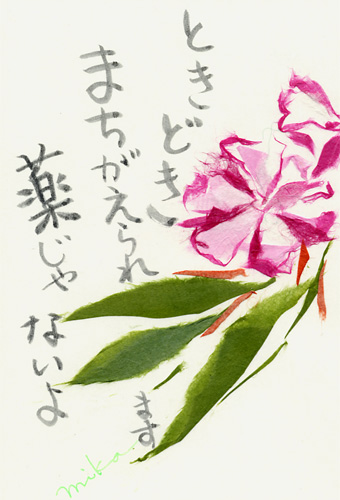 ときどき
まちがえられ
ます
薬じゃ
ないよ
mika.